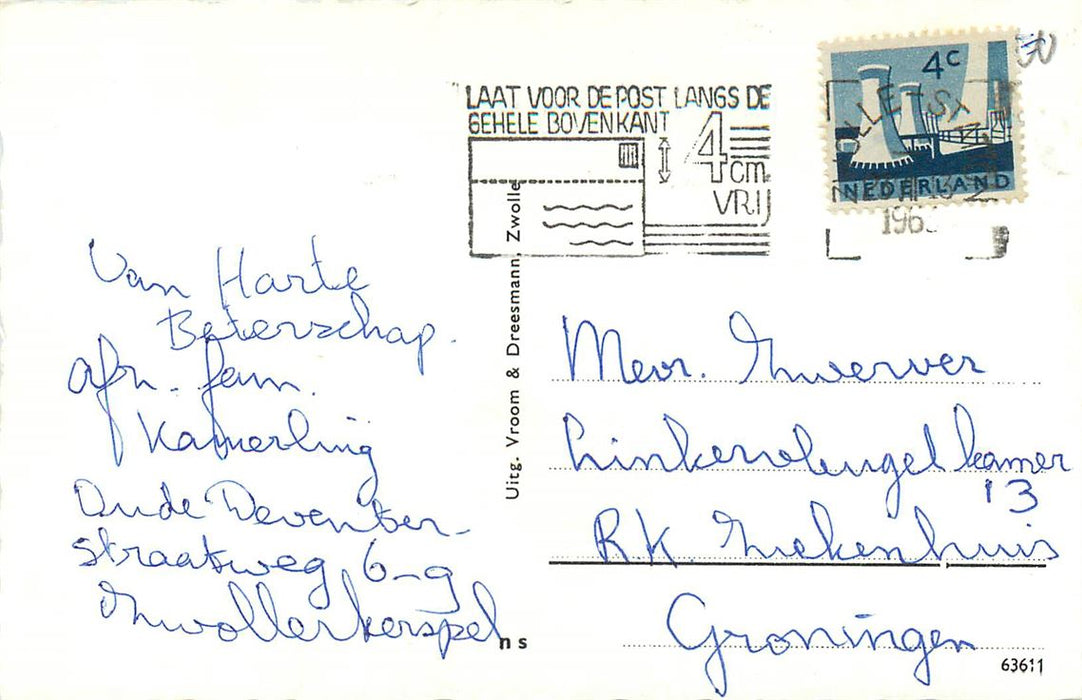 LAAT VOOR DE POST LANGS DE
GEHELE BOVENKANT
4 cm.
VRIJ
4c
NEDERLAND
196
Van Harte
Beterschap.
afz. fam.
Kamerling
Oude Deventer-
straatweg 6-9
Zwollerkerspel
Uitg. Vroom & Dreesmann, Zwolle
Mevr. Zwerver
Linkervleugel kamer
13
R.K. Ziekenhuis
Groningen
ns
63611